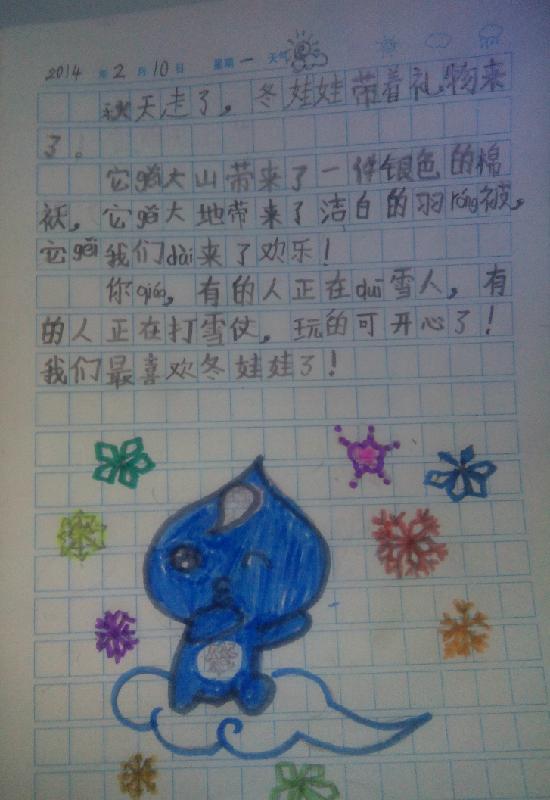 2014年2月10日 星期一 天气
秋天走了，冬娃娃带着礼物来
了。
它gěi大山带来了一件银色的棉
袄，它gěi大地带来了洁白的羽róng被，
它gěi我们dài来了欢乐！
你qiáo，有的人正在duī雪人，有
的人正在打雪仗，玩的可开心了！
我们最喜欢冬娃娃了！